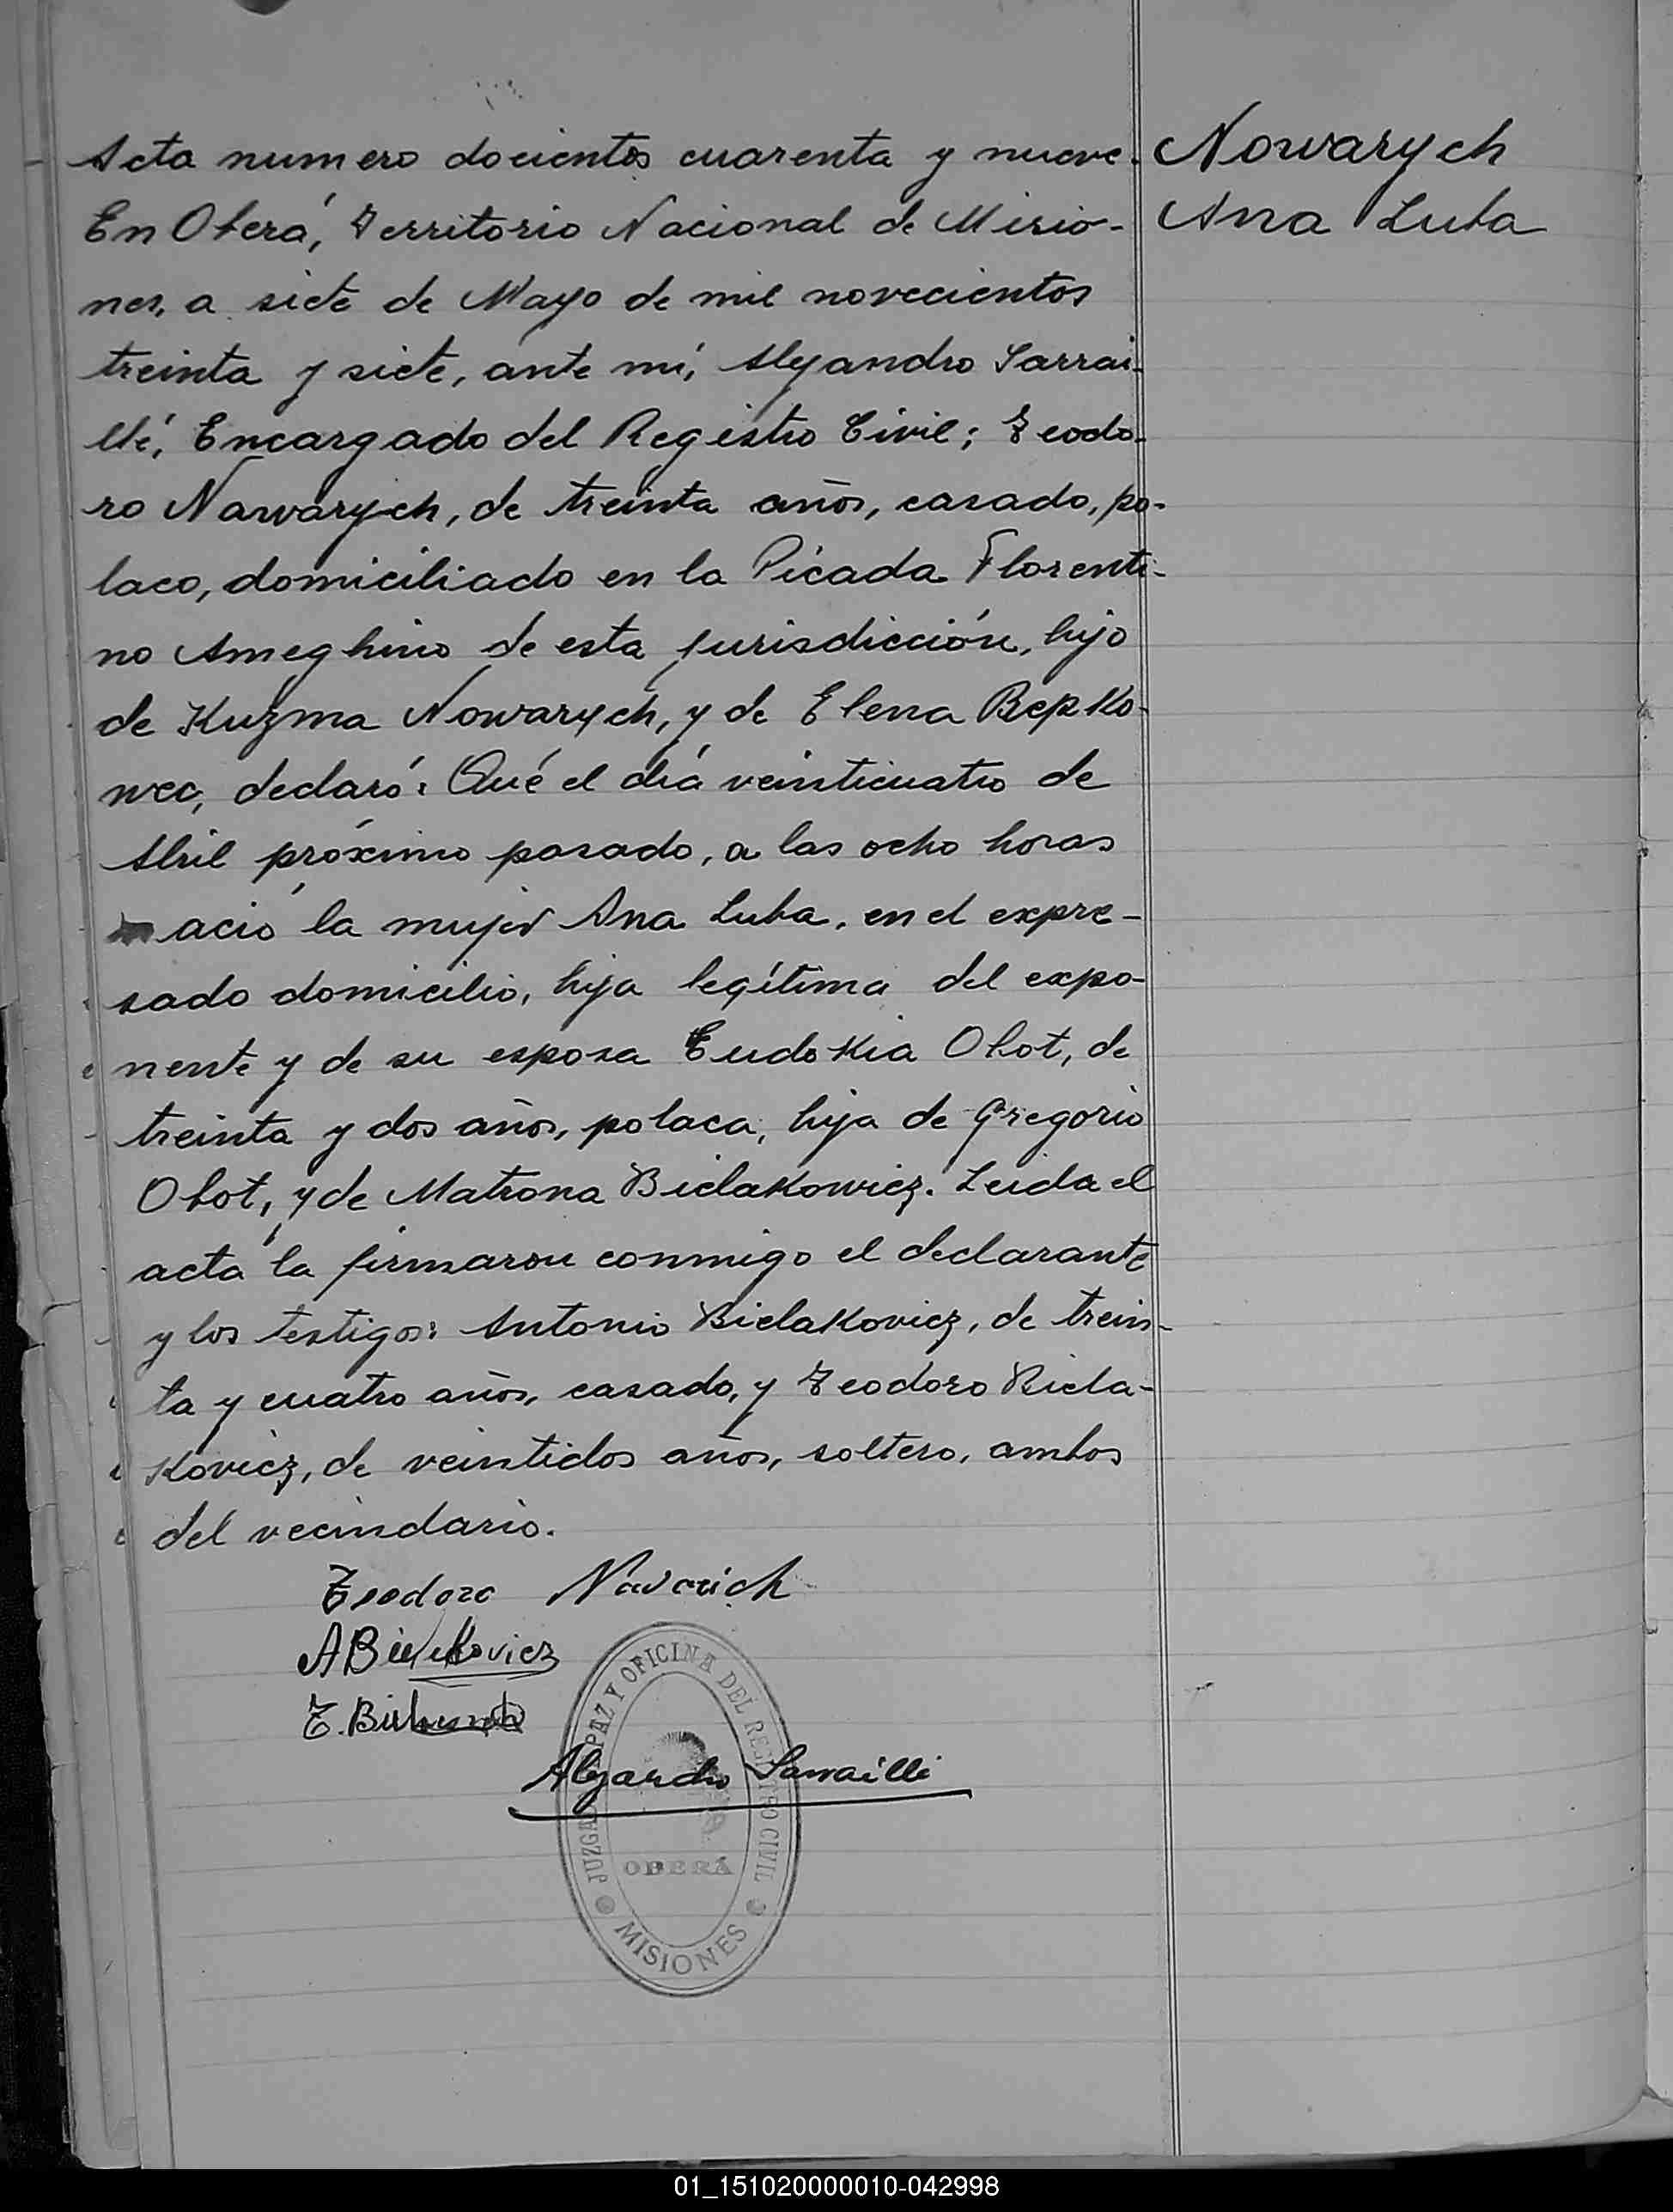 Acta numero docientos cuarenta y nueve.
Nowarych
En Oberá, Territorio Nacional de Misio-
Ana Luba
nes, a siete de Mayo de mil novecientos
treinta y siete, ante mí, Alejandro Sarrai-
llé, Encargado del Registro Civil; Teodo-
ro Nawarych, de treinta años, casado, po-
laco, domiciliado en la Picada Florenti-
no Ameghino de esta jurisdicción, hijo
de Kuzma Nowarych, y de Elena Bepko-
wec, declaró: Qué el día veinticuatro de
Abril próximo pasado, a las ocho horas
nació la mujer Ana Luba, en el expre-
sado domicilio, hija legítima del expo-
nente y de su esposa Eudokia Obot, de
treinta y dos años, polaca, hija de Gregorio
Obot, y de Matrona Bielakowicz. Leida el
acta la firmaron conmigo el declarante
y los testigos: Antonio Bielakovicz, de trein-
ta y cuatro años, casado, y Teodoro Biela-
kovicz, de veintidos años, soltero, ambos
del vecindario.
Teodoro Navarich
A Bielakovicz
T.
Alejandro Sarraillé
JUZGADO PAZ Y OFICINA DEL REGISTRO CIVIL
OBERÁ
MISIONES
01_151020000010-042998